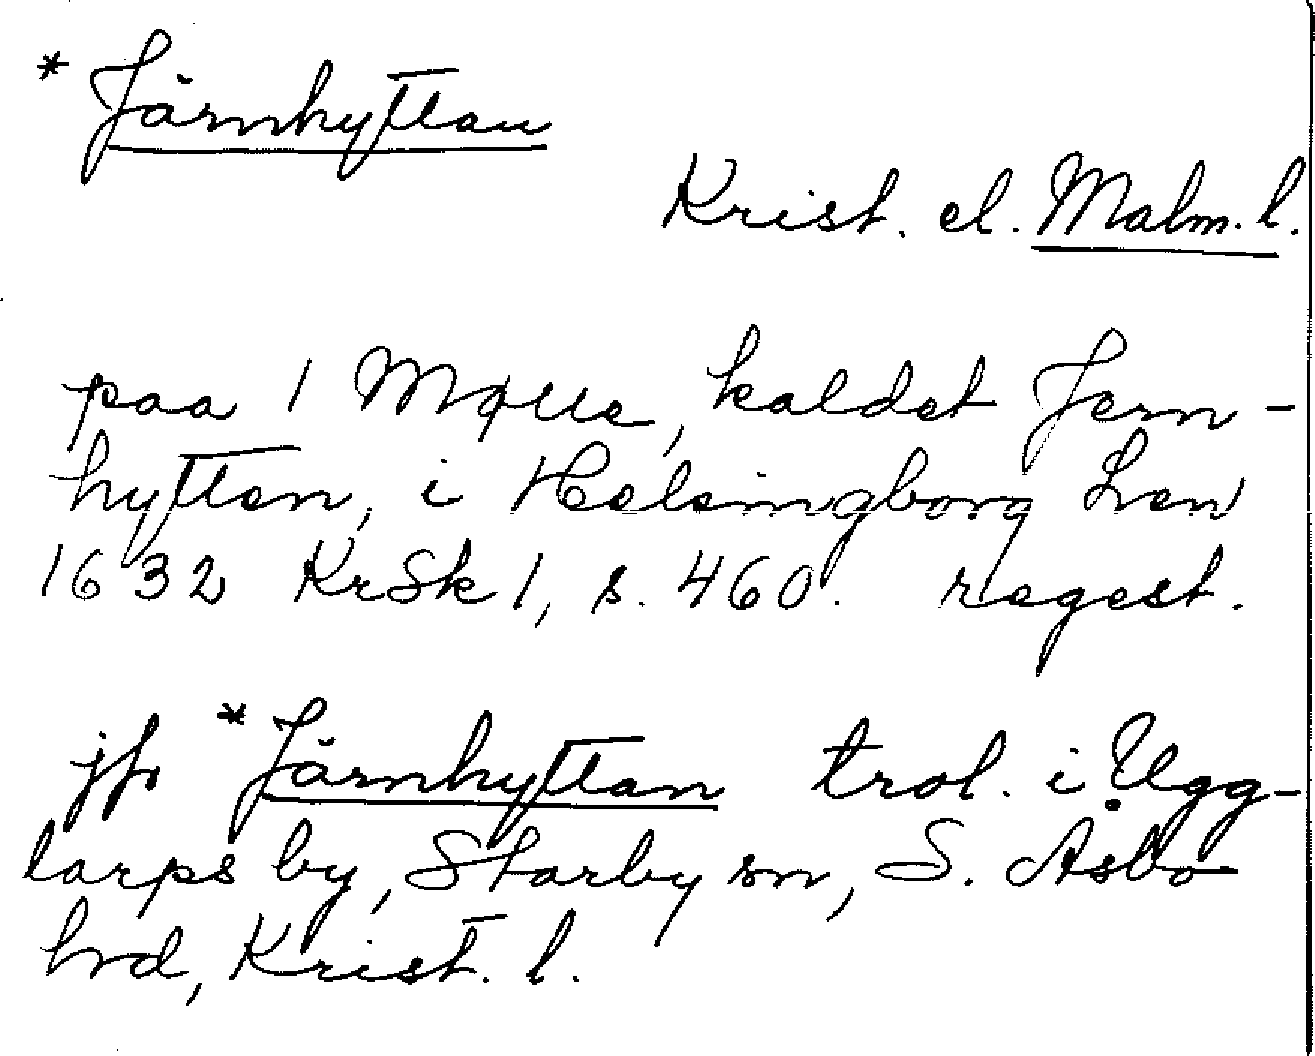 * Järnhyttan
Krist. el. Malm. l.
paa 1 Mølle, kaldet Jern-
hytten, i Helsingborg Len
1632 KrSk 1, s. 460. regest.
jfr *Järnhyttan trol. i Ugg-
larps by, Starby sn, S. Åsbo
hrd, Krist. l.